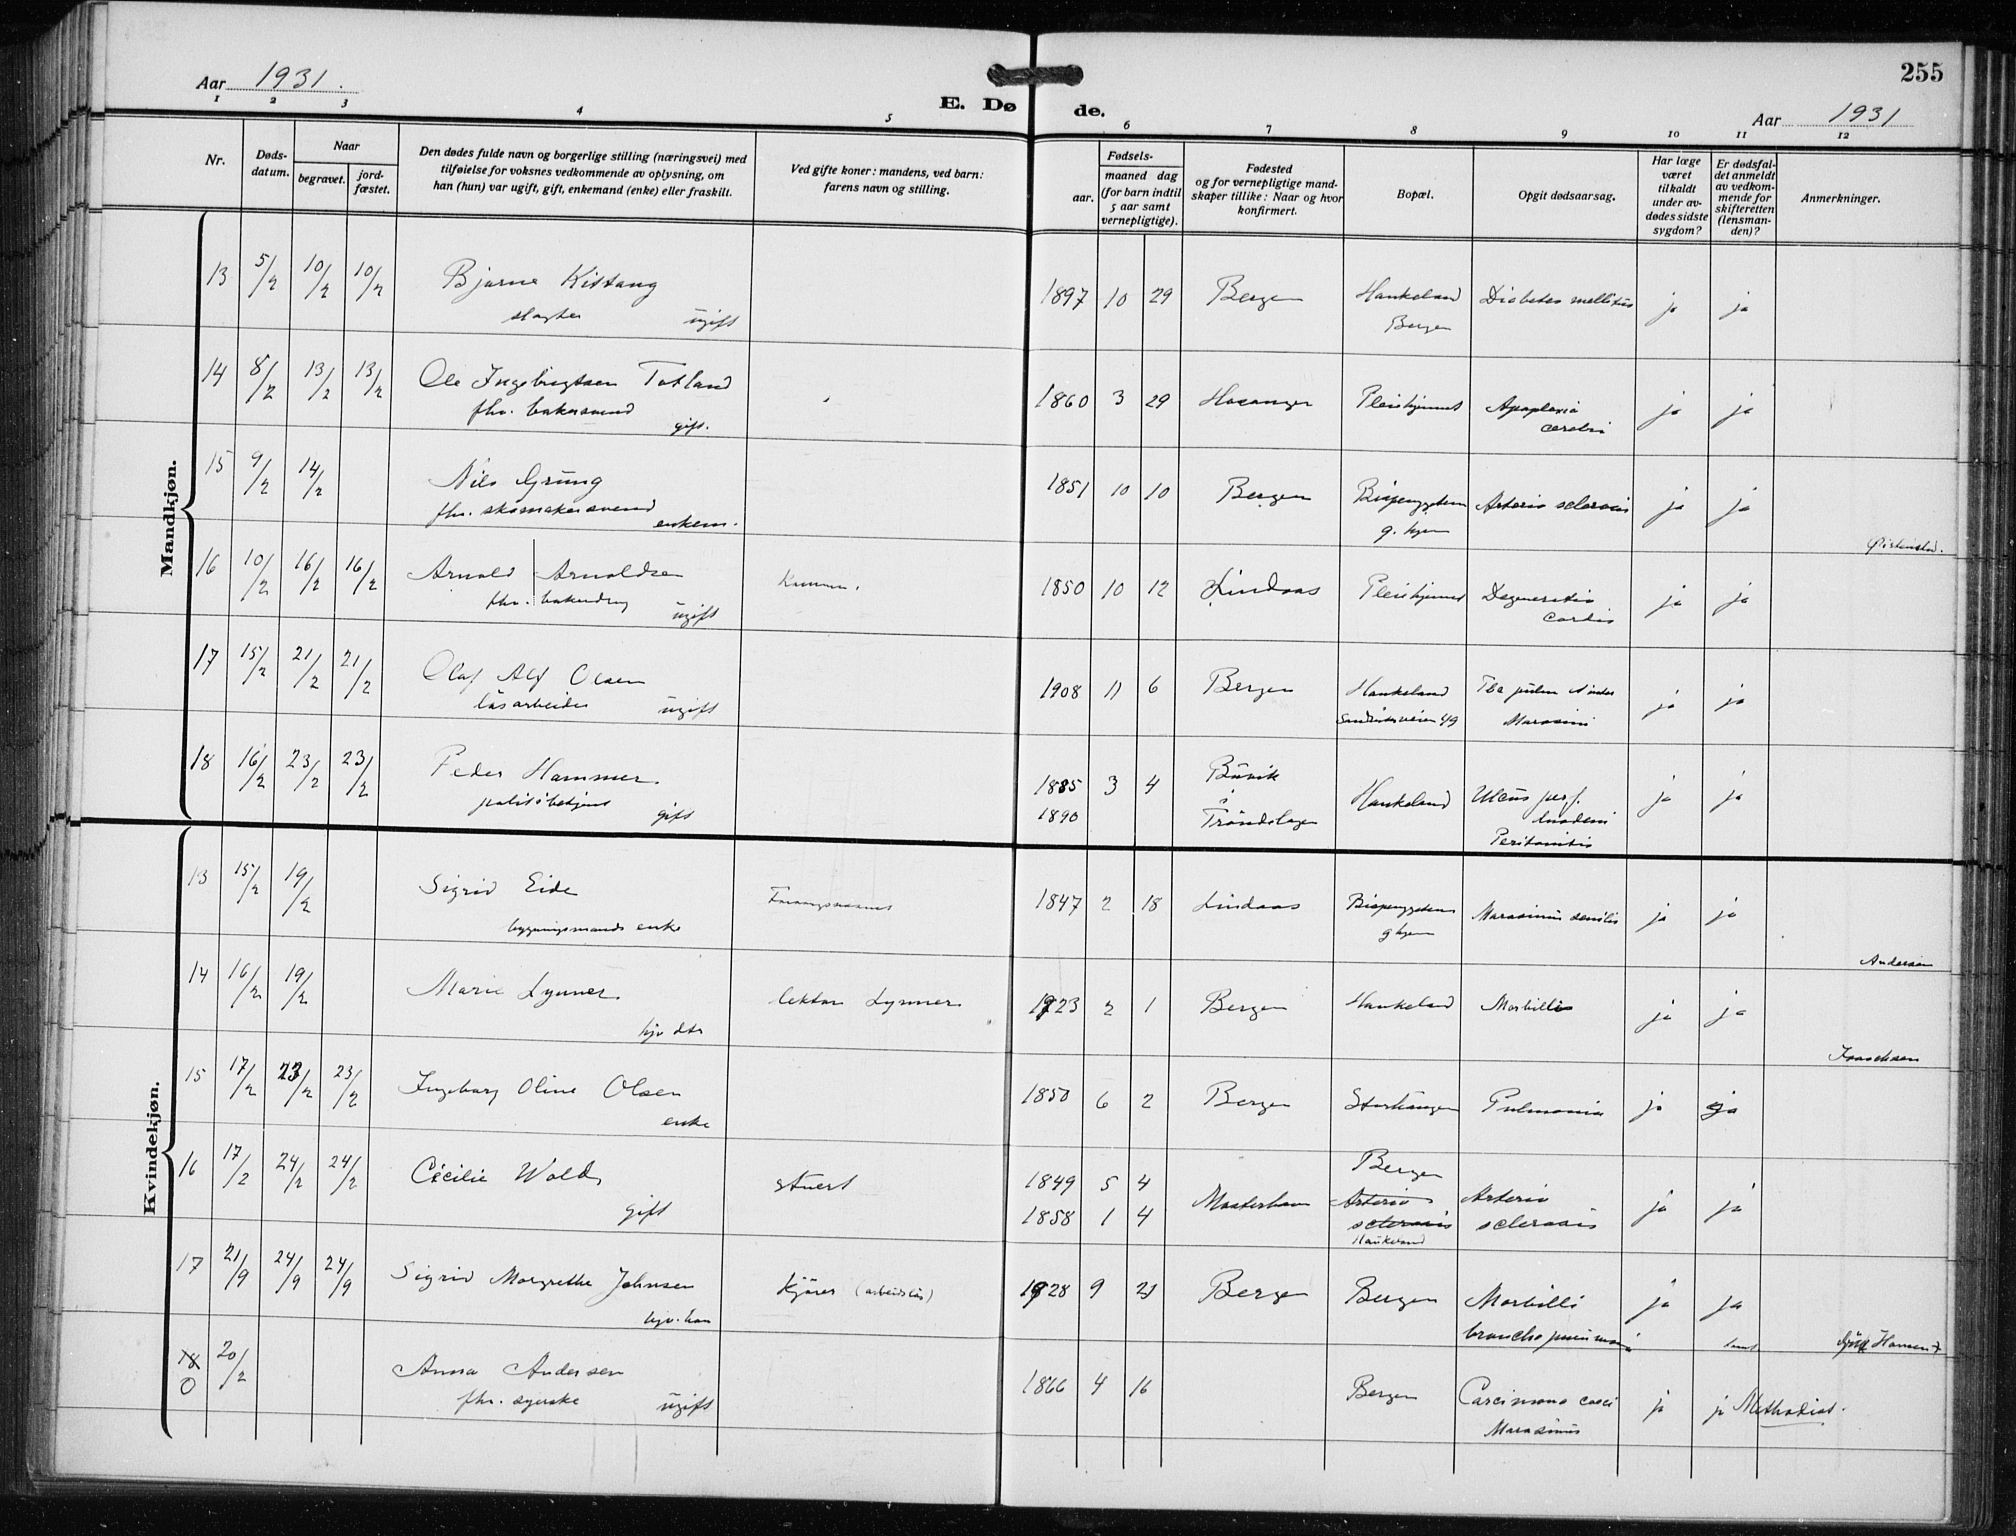 255
Aar 1931.
E. Døde.
Aar 1931
1 2 3 4 5 6 7 8 9 10 11 12
Nr.
Døds-
datum.
Naar
begravet.
jord-
fæstet.
Den dødes fulde navn og borgerlige stilling (næringsvei) med
tilføielse for voksnes vedkommende av oplysning, om
han (hun) var ugift, gift, enkemand (enke) eller fraskilt.
Ved gifte koner: mandens, ved barn:
farens navn og stilling.
Fødsels-
aar.
maaned dag
(for barn indtil
5 aar samt
vernepligtige).
Fødested
og for vernepligtige mand-
skaper tillike: Naar og hvor
konfirmert.
Bopæl.
Opgit dødsaarsag.
Har læge
været
tilkaldt
under av-
dødes sidste
sygdom?
Er dødsfal-
det anmeldt
av vedkom-
mende for
skifteretten
(lensman-
den)?
Anmerkninger.
Mandkjøn.
13 5/2 10/2 10/2 Bjarne Kittang 1897 10 29 Bergen Haukeland Diabetes mellitus ja ja
slagter ugift Bergen
14 8/2 13/2 13/2 Ole Ingebrigtsen Totland 1860 3 29 Hosanger Pleiehjemmet Apoplexia ja ja
fhv. bakersvend gift. cerebri
15 9/2 14/2 Nils Grung 1851 10 10 Bergen Arterio sclerosis ja ja
fhv. skomakersvend enkem. g. hjem
16 10/2 16/2 16/2 Arnold Arnoldsen 1850 10 12 Lindaas Pleiehjemmet ja ja
fhv. ugift cordis
17 15/2 21/2 21/2 Olaf Alf Olsen 1908 11 6 Bergen Haukeland Tbc pulm ja ja
løsarbeider ugift 49
18 16/2 23/2 23/2 Peder Hammer. 1885 3 4 Buvik Haukeland Ulcus perf. ja ja
politibetjent gift 1890 Trøndelagen
Peritonitis
Kvindekjøn.
13 15/2 19/2 Sigrid Eide 1847 2 18 Lindaas Marasmus senilis ja ja
bygningsmands enke g hjem
Andersen
14 16/2 19/2 Marie Lynner lektor Lynner 1923 2 1 Bergen Haukeland Morbilli ja ja
hjv dtr
Isaachsen
15 17/2 23/2 23/2 Ingeborg Oline Olsen 1850 6 2 Bergen Pulmonia ja ja
enke
16 17/2 24/2 24/2 Cecilie Wold stuert 1849 5 4 Bergen Arterio ja ja
gift 1858 1 4 Arterio sclerosis
sclerosis
Haukeland
17 21/9 24/9 24/9 Sigrid Margrethe Johnsen kjører (arbeidsløs) 1928 9 21 Bergen Bergen Morbilli ja ja
broncho pneumoni Hansen
18 20/2 Anna Andersen 1866 4 16 Bergen Carcinoma coeci ja ja Methodist.
0 fhv. syerske ugift Marasmus